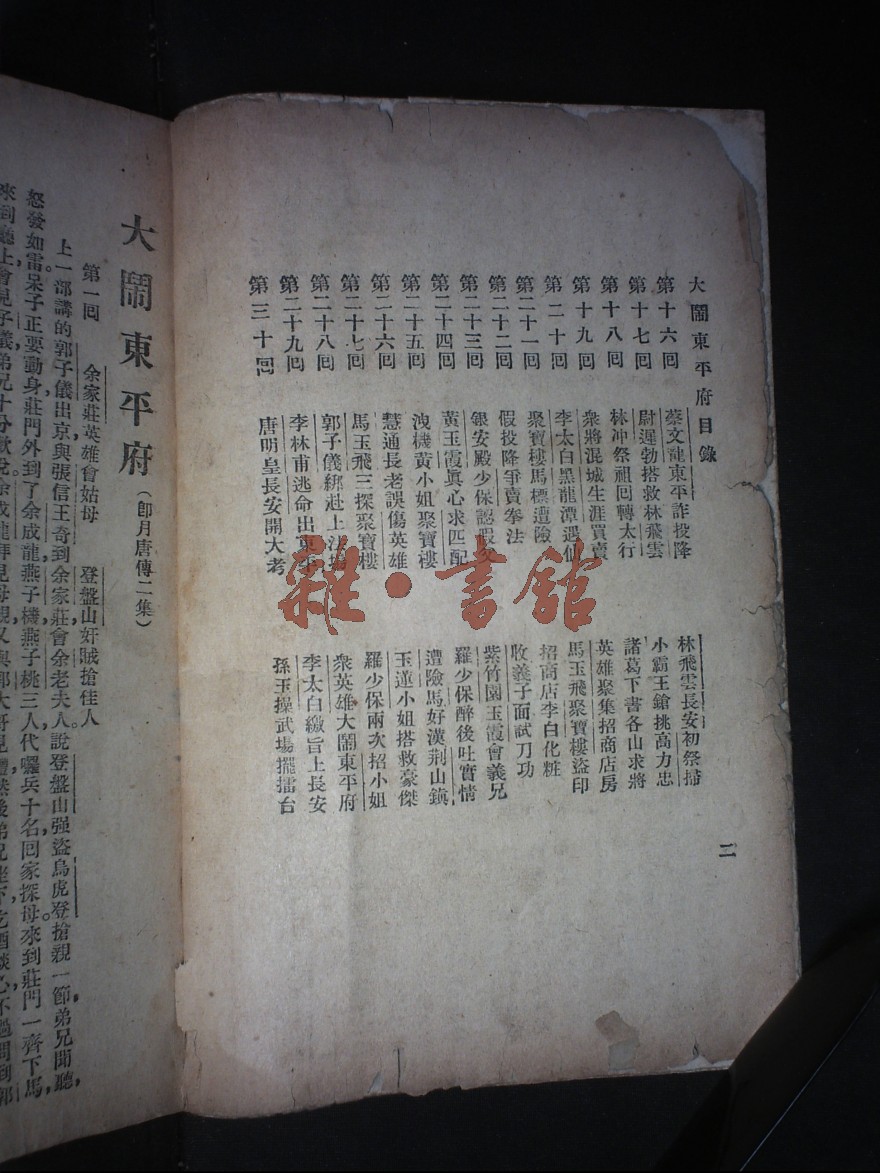 大鬧東平府目錄
第十六囘 蔡文龍東平詐投降 林飛雲長安初祭掃
第十七囘 尉遲勃搭救林飛雲 小霸王鎗挑高力忠
第十八囘 林冲祭祖回轉太行 諸葛下書各山求將
第十九囘 衆將混城生涯買賣 英雄聚集招商店房
第二十囘 李太白黑龍潭遇仙 馬玉飛聚寶樓盜印
第二十一囘 聚寶樓馬標遭險 招商店李白化粧
第二十二囘 假投降爭賣拳法 收義子面試刀功
第二十三囘 銀安殿少保認假父 紫竹園玉霞會義兄
第二十四囘 黃玉霞眞心求匹配 羅少保醉後吐實情
第二十五囘 洩機黃小姐聚寶樓 遭險馬好漢荆山鎭
第二十六囘 慧通長老誤傷英雄 玉蓮小姐搭救豪傑
第二十七囘 馬玉飛三探聚寶樓 羅少保兩次招小姐
第二十八囘 郭子儀綁赴上法場 衆英雄大鬧東平府
第二十九囘 李林甫逃命出東平 李太白繳旨上長安
第三十囘 唐明皇長安開大考 孫玉操武場擺擂台
二
雜·書館
大鬧東平府(卽月唐傳二集)
第一囘 余家莊英雄會姑母 登盤山奸賊搶佳人
上一部講的郭子儀出京與張信王奇到余家莊會余老夫人。說登盤山强盜烏虎登搶親一節，弟兄聞聽，
怒發如雷。呆子正要動身，莊門外到了余成龍，燕子機，燕子桃，三人代囉兵十名，回家探母。來到莊門，一齊下馬，